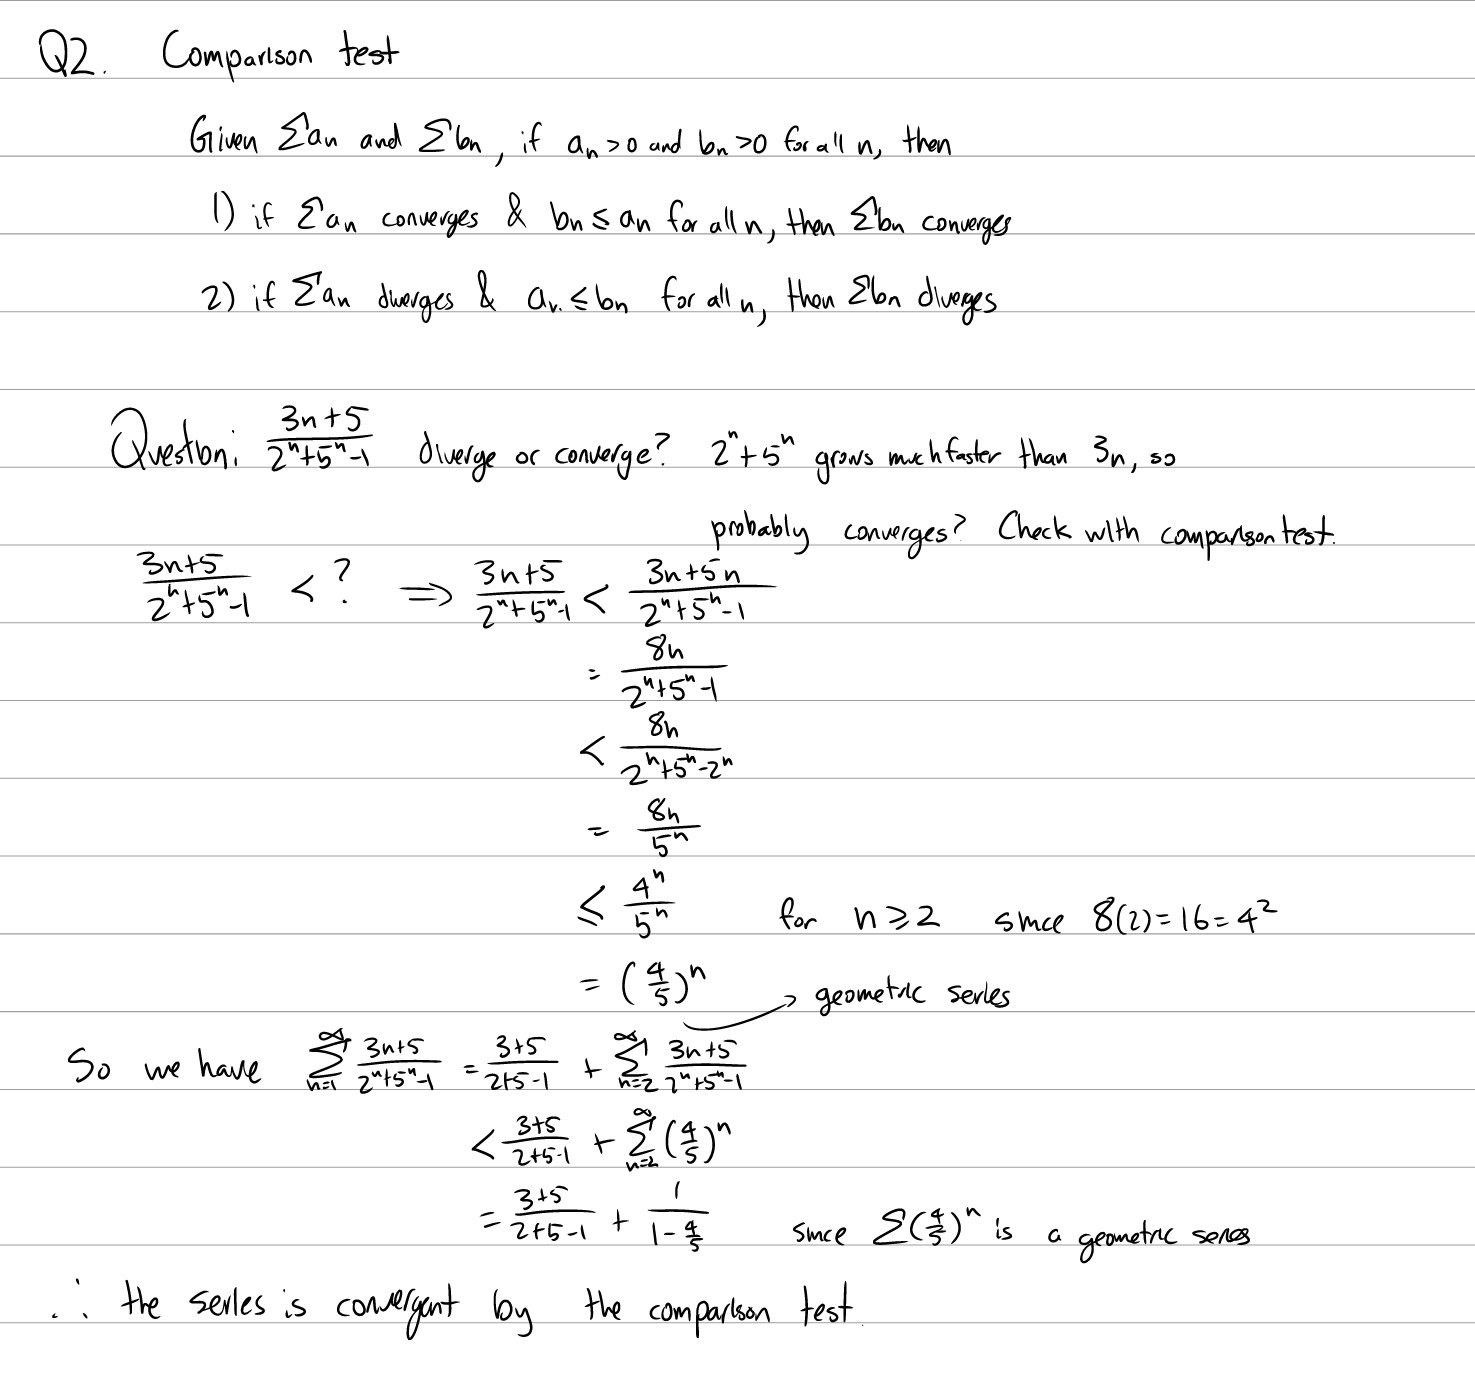 Q2. Comparison test
Given Σan and Σbn, if an>0 and bn>0 for all n, then
1) if Σan converges & bn ≤ an for all n, then Σbn converges
2) if Σan diverges & an ≤ bn for all n, then Σbn diverges
Question: (3n+5)/(2^n+5^n-1) diverge or converge? 2^n+5^n grows much faster than 3n, so
probably converges? Check with comparison test.
(3n+5)/(2^n+5^n-1) < ? ⇒ (3n+5)/(2^n+5^n-1) < (3n+5n)/(2^n+5^n-1)
= 8n/(2^n+5^n-1)
< 8n/(2^n+5^n-2^n)
= 8n/5^n
≤ 4^n/5^n for n≥2 since 8(2)=16=4^2
= (4/5)^n → geometric series
So we have Σ_{n=1}^{∞} (3n+5)/(2^n+5^n-1) = (3+5)/(2+5-1) + Σ_{n=2}^{∞} (3n+5)/(2^n+5^n-1)
< (3+5)/(2+5-1) + Σ_{n=2}^{∞} (4/5)^n
= (3+5)/(2+5-1) + 1/(1-4/5) since Σ(4/5)^n is a geometric series
∴ the series is convergent by the comparison test.